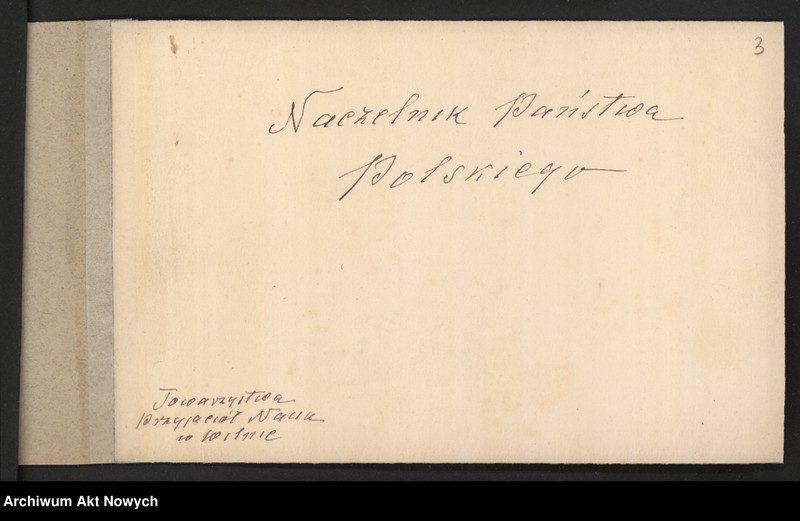 3
Naczelnik Państwa
Polskiego
Towarzystwa
Przyjaciół Nauk
w Wilnie
Archiwum Akt Nowych